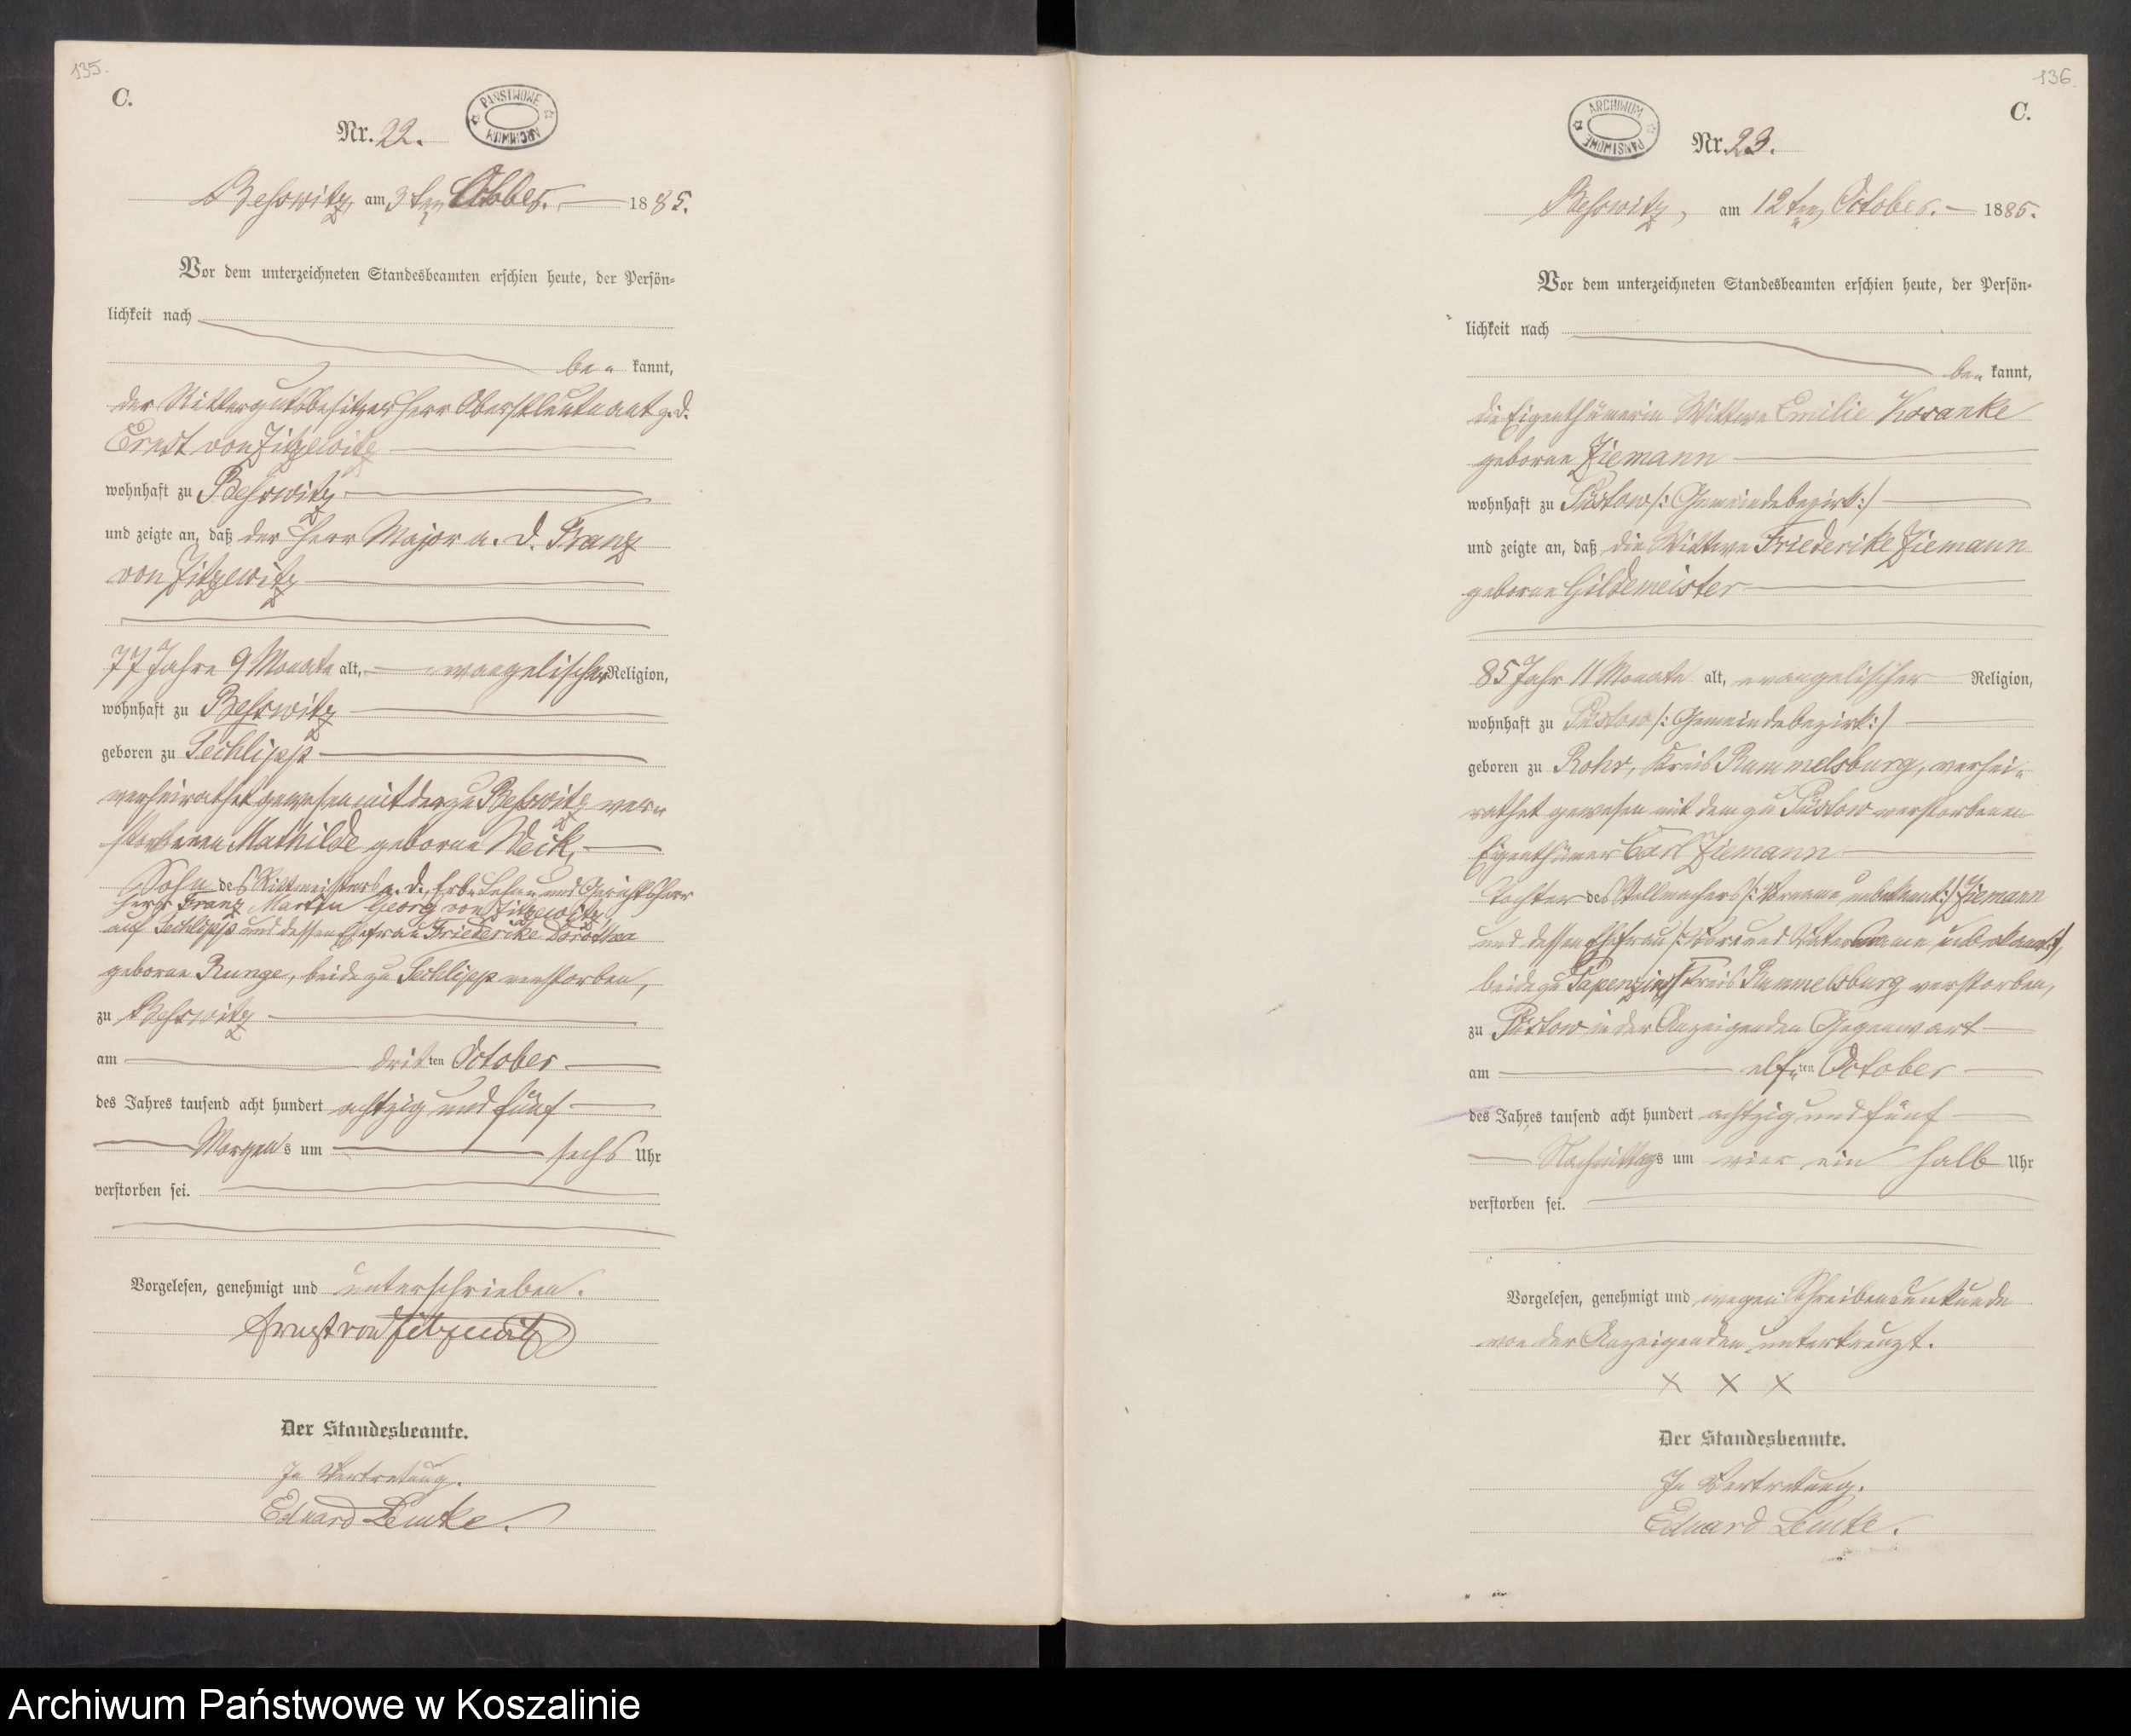 135.
C.
PAŃSTWOWE ARCHIWUM
Nr. 22.
Beßwitz, am 3ten October. 1885.
Vor dem unterzeichneten Standesbeamten erschien heute, der Persön-
lichkeit nach
be- kannt,
der Rittergutsbesitzer Herr Oberstleutnant z. d.
Ernst von Zitzewitz
wohnhaft zu Beßwitz
und zeigte an, daß der Herr Major a. D. Franz
von Zitzewitz
77 Jahre 9 Monate alt, evangelischer Religion,
wohnhaft zu Beßwitz
geboren zu Techlipp
verheirathet gewesen mit der zu Beßwitz ver-
storbenen Mathilde geborne
Sohn des Rittmeisters a. D. Erb- Lehn- und Gerichtsherr
Herr Franz Martin Georg von Zitzewitz
auf Techlipp und dessen Ehefrau Friederike Dorothea
geborne Runge, beide zu Techlipp verstorben,
zu Beßwitz
am dritten October
des Jahres tausend acht hundert achtzig und fünf
Morgens um sechs Uhr
verstorben sei.
Vorgelesen, genehmigt und unterschrieben.
Ernst von Zitzewitz
Der Standesbeamte.
In Vertretung.
Eduard Lemke.
136.
C.
ARCHIWUM PAŃSTWOWE
Nr. 23.
Beßwitz, am 12ten October. 1885.
Vor dem unterzeichneten Standesbeamten erschien heute, der Persön-
lichkeit nach
be- kannt,
die Eigenthümerin Wittwe Emilie Kosanke
geborne Ziemann
wohnhaft zu Püstow /: Gemeindebezirk :/
und zeigte an, daß die Wittwe Friederike Ziemann
geborne Gildemeister
85 Jahr 11 Monate alt, evangelischer Religion,
wohnhaft zu Püstow /: Gemeindebezirk :/
geboren zu Rohr, Kreis Rummelsburg, verhei-
rathet gewesen mit dem zu Püstow verstorbenen
Eigenthümer Carl Ziemann
Tochter des Stellmachers /: Vorname unbekannt :/ Ziemann
und dessen Ehefrau /: Vor und Vatername unbekannt :/,
beide zu Papenzin Kreis Rummelsburg verstorben,
zu Püstow in der Anzeigenden Gegenwart
am elf-ten October
des Jahres tausend acht hundert achtzig und fünf
Nachmittags um vier ein halb Uhr
verstorben sei.
Vorgelesen, genehmigt und wegen Schreibensunkunde
von der Anzeigenden unterkreuzt.
X X X
Der Standesbeamte.
In Vertretung.
Eduard Lemke.
Archiwum Państwowe w Koszalinie